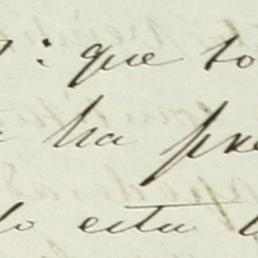 : que to
ha pre
lo esta